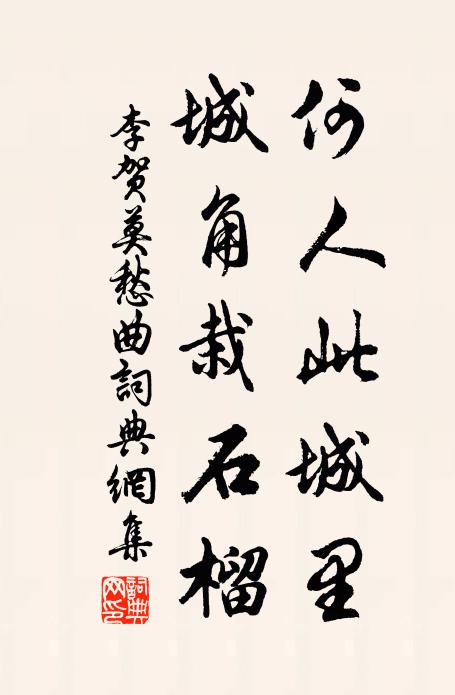 何人此城里
城角栽石榴
李贺莫愁曲詞典網集
詞典网印